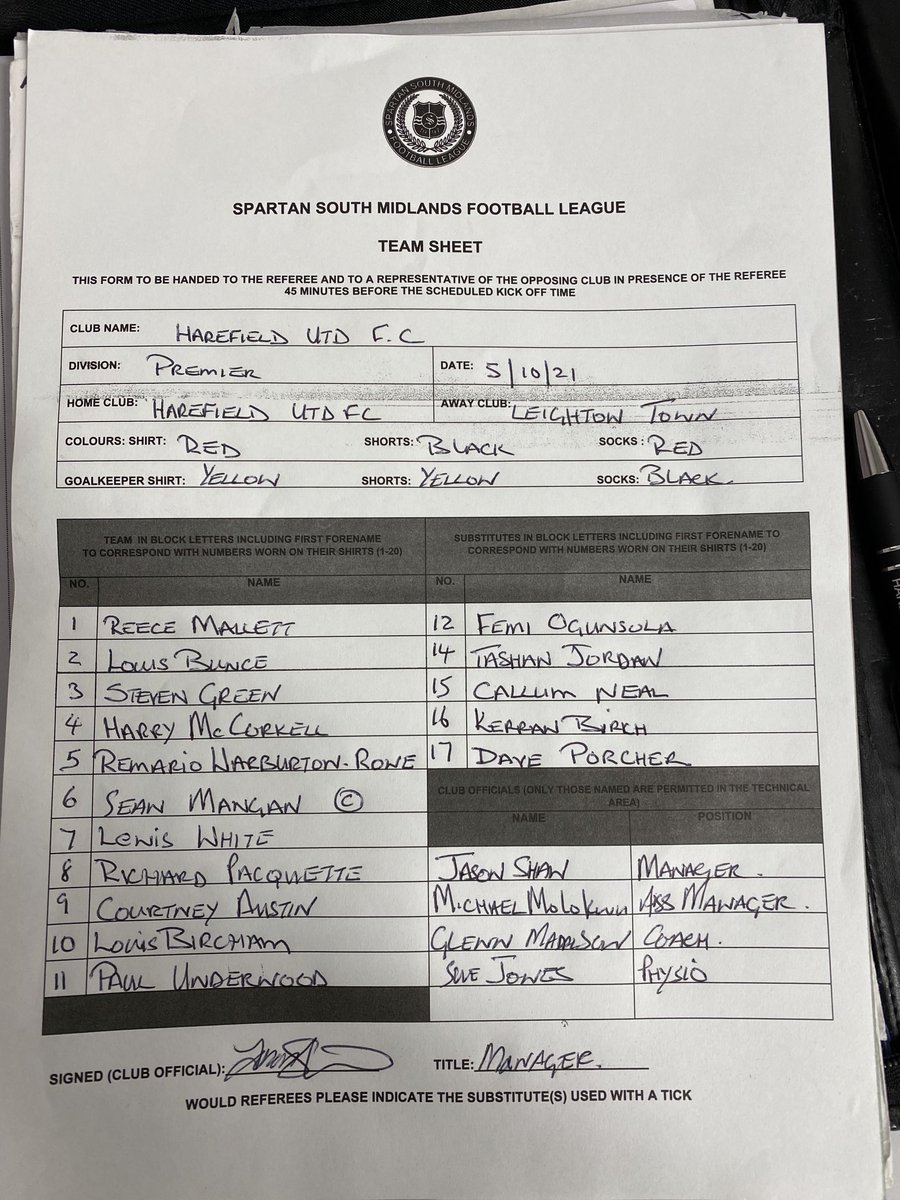 SPARTAN SOUTH MIDLANDS
FOOTBALL LEAGUE
SPARTAN SOUTH MIDLANDS FOOTBALL LEAGUE
TEAM SHEET
THIS FORM TO BE HANDED TO THE REFEREE AND TO A REPRESENTATIVE OF THE OPPOSING CLUB IN PRESENCE OF THE REFEREE
45 MINUTES BEFORE THE SCHEDULED KICK OFF TIME
CLUB NAME: HAREFIELD UTD F.C
DIVISION: PREMIER DATE: 5/10/21
HOME CLUB: HAREFIELD UTD FC AWAY CLUB: LEIGHTON TOWN
COLOURS: SHIRT: RED SHORTS: BLACK SOCKS: RED
GOALKEEPER SHIRT: YELLOW SHORTS: YELLOW SOCKS: BLACK.
TEAM IN BLOCK LETTERS INCLUDING FIRST FORENAME
TO CORRESPOND WITH NUMBERS WORN ON THEIR SHIRTS (1-20)
SUBSTITUTES IN BLOCK LETTERS INCLUDING FIRST FORENAME TO
CORRESPOND WITH NUMBERS WORN ON THEIR SHIRTS (1-20)
NO. NAME NO. NAME
1 REECE MALLETT 12 FEMI OGUNSOLA
2 LOUIS BUNCE 14 TASHAN JORDAN
3 STEVEN GREEN 15 CALLUM NEAL
4 HARRY McCORKELL 16 KERRAN BIRCH
5 REMARIO WARBURTON-ROWE 17 DAVE PORCHER
6 SEAN MANGAN ©
CLUB OFFICIALS (ONLY THOSE NAMED ARE PERMITTED IN THE TECHNICAL
AREA)
NAME POSITION
7 LEWIS WHITE
8 RICHARD PACQUETTE JASON SHAW MANAGER.
9 COURTNEY AUSTIN MICHAEL ASS MANAGER.
10 LOUIS BIRCHAM GLENN COACH.
11 PAUL UNDERWOOD SUE JONES PHYSIO
SIGNED (CLUB OFFICIAL): TITLE: MANAGER.
WOULD REFEREES PLEASE INDICATE THE SUBSTITUTE(S) USED WITH A TICK